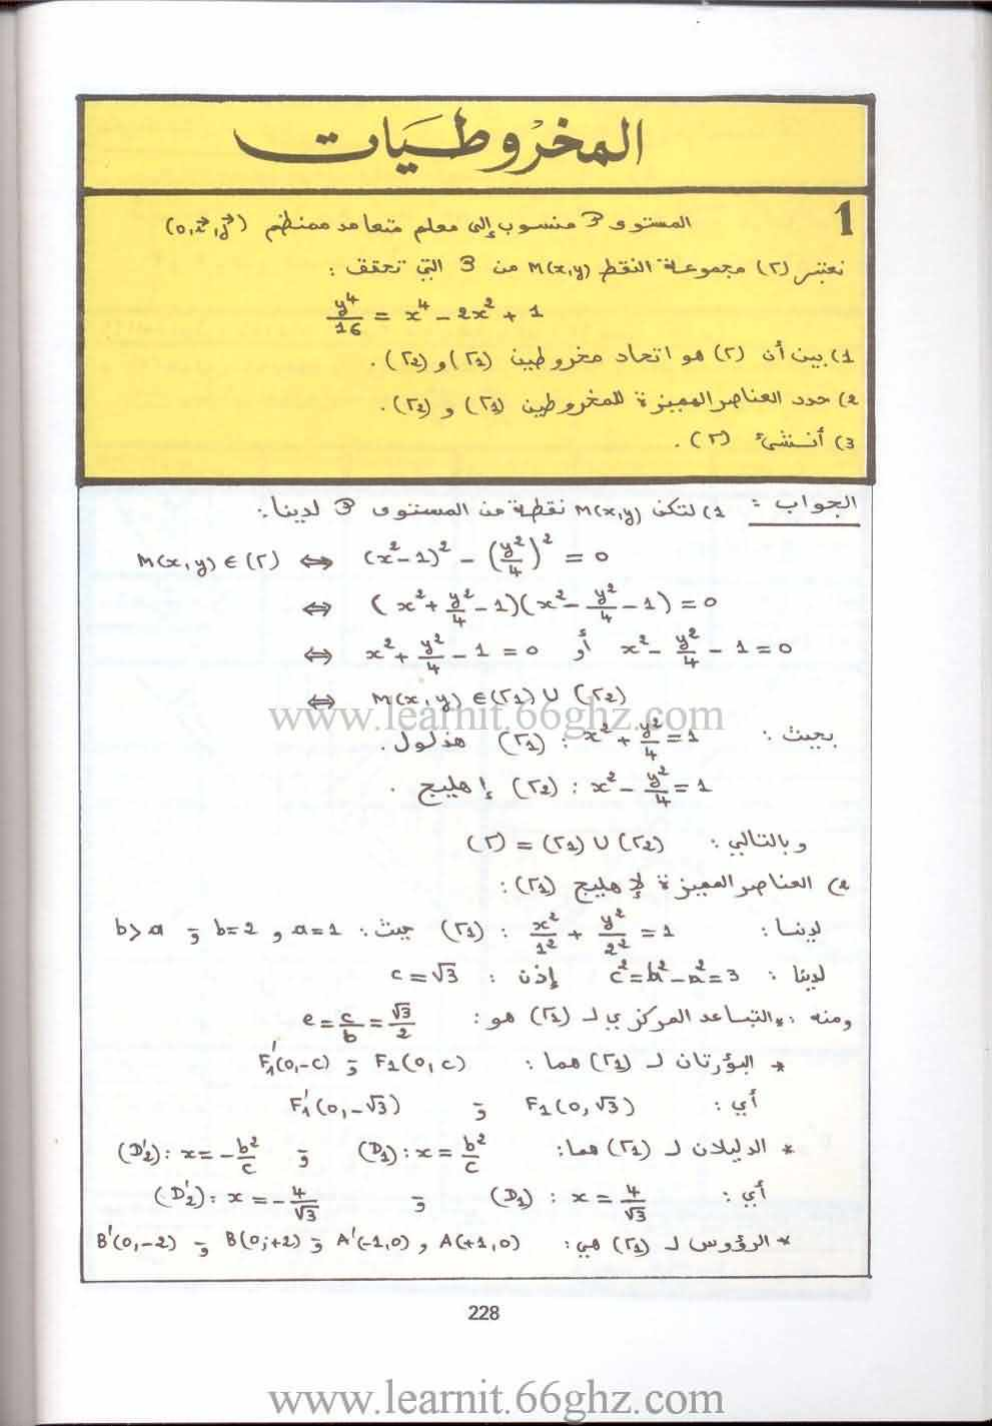 المخروطيات
1
المستوى P منسوب إلى معلم متعامد ممنظم (o, i⃗, j⃗)
نعتبر (Γ) مجموعة النقط M(x,y) من P التي تحقق :
y⁴/16 = x⁴ - 2x² + 1
1) بين أن (Γ) هو اتحاد مخروطين (Γ1) و (Γ2).
2) حدد العناصر المميزة للمخروطين (Γ1) و (Γ2).
3) أنشئ (Γ).
الجواب : 1) لتكن M(x,y) نقطة من المستوى P لدينا :
M(x,y) ∈ (Γ) ⇔ (x²-1)² - (y²/4)² = 0
⇔ (x² + y²/4 - 1)(x² - y²/4 - 1) = 0
⇔ x² + y²/4 - 1 = 0 أو x² - y²/4 - 1 = 0
⇔ M(x,y) ∈ (Γ1) ∪ (Γ2)
www.learnit.66ghz.com
بحيث : (Γ1) : x² + y²/4 = 1 هذلول .
(Γ2) : x² - y²/4 = 1 إهليج .
وبالتالي : (Γ) = (Γ1) ∪ (Γ2)
2) العناصر المميزة لإهليج (Γ1) :
لدينا : (Γ1) : x²/1² + y²/2² = 1 حيث : a=1 و b=2 و b>a
لدينا : c² = b² - a² = 3 إذن : c = √3
ومنه : * التباعد المركزي لـ (Γ1) هو : e = c/b = √3/2
* البؤرتان لـ (Γ1) هما : F1(0,c) و F'1(0,-c)
أي : F1(0,√3) و F'1(0,-√3)
* الدليلان لـ (Γ1) هما : (D1) : x = b²/c و (D'2) : x = -b²/c
أي : (D1) : x = 4/√3 و (D'2) : x = -4/√3
* الرؤوس لـ (Γ1) هي : A(+1,0) و A'(-1,0) و B(0;+2) و B'(0,-2)
228
www.learnit.66ghz.com